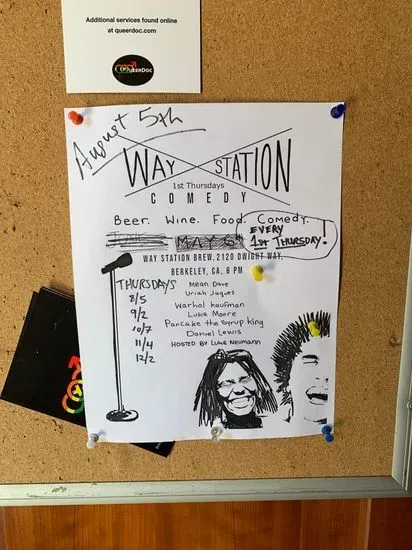 Additional services found online
at queerdoc.com
QueerDoc
August 5th
WAY STATION
1st Thursdays
COMEDY
Beer. Wine. Food. Comedy.
MAY 6th
EVERY
1st THURSDAY!
WAY STATION BREW, 2120 DWIGHT WAY,
BERKELEY, CA, 6 PM
THURSDAYS
8/5
9/2
10/7
11/4
12/2
Mean Dave
Uriah Jaques
Warhol Kaufman
Luke Moore
Pancake the Syrup King
Daniel Lewis
HOSTED BY Luke Neumann